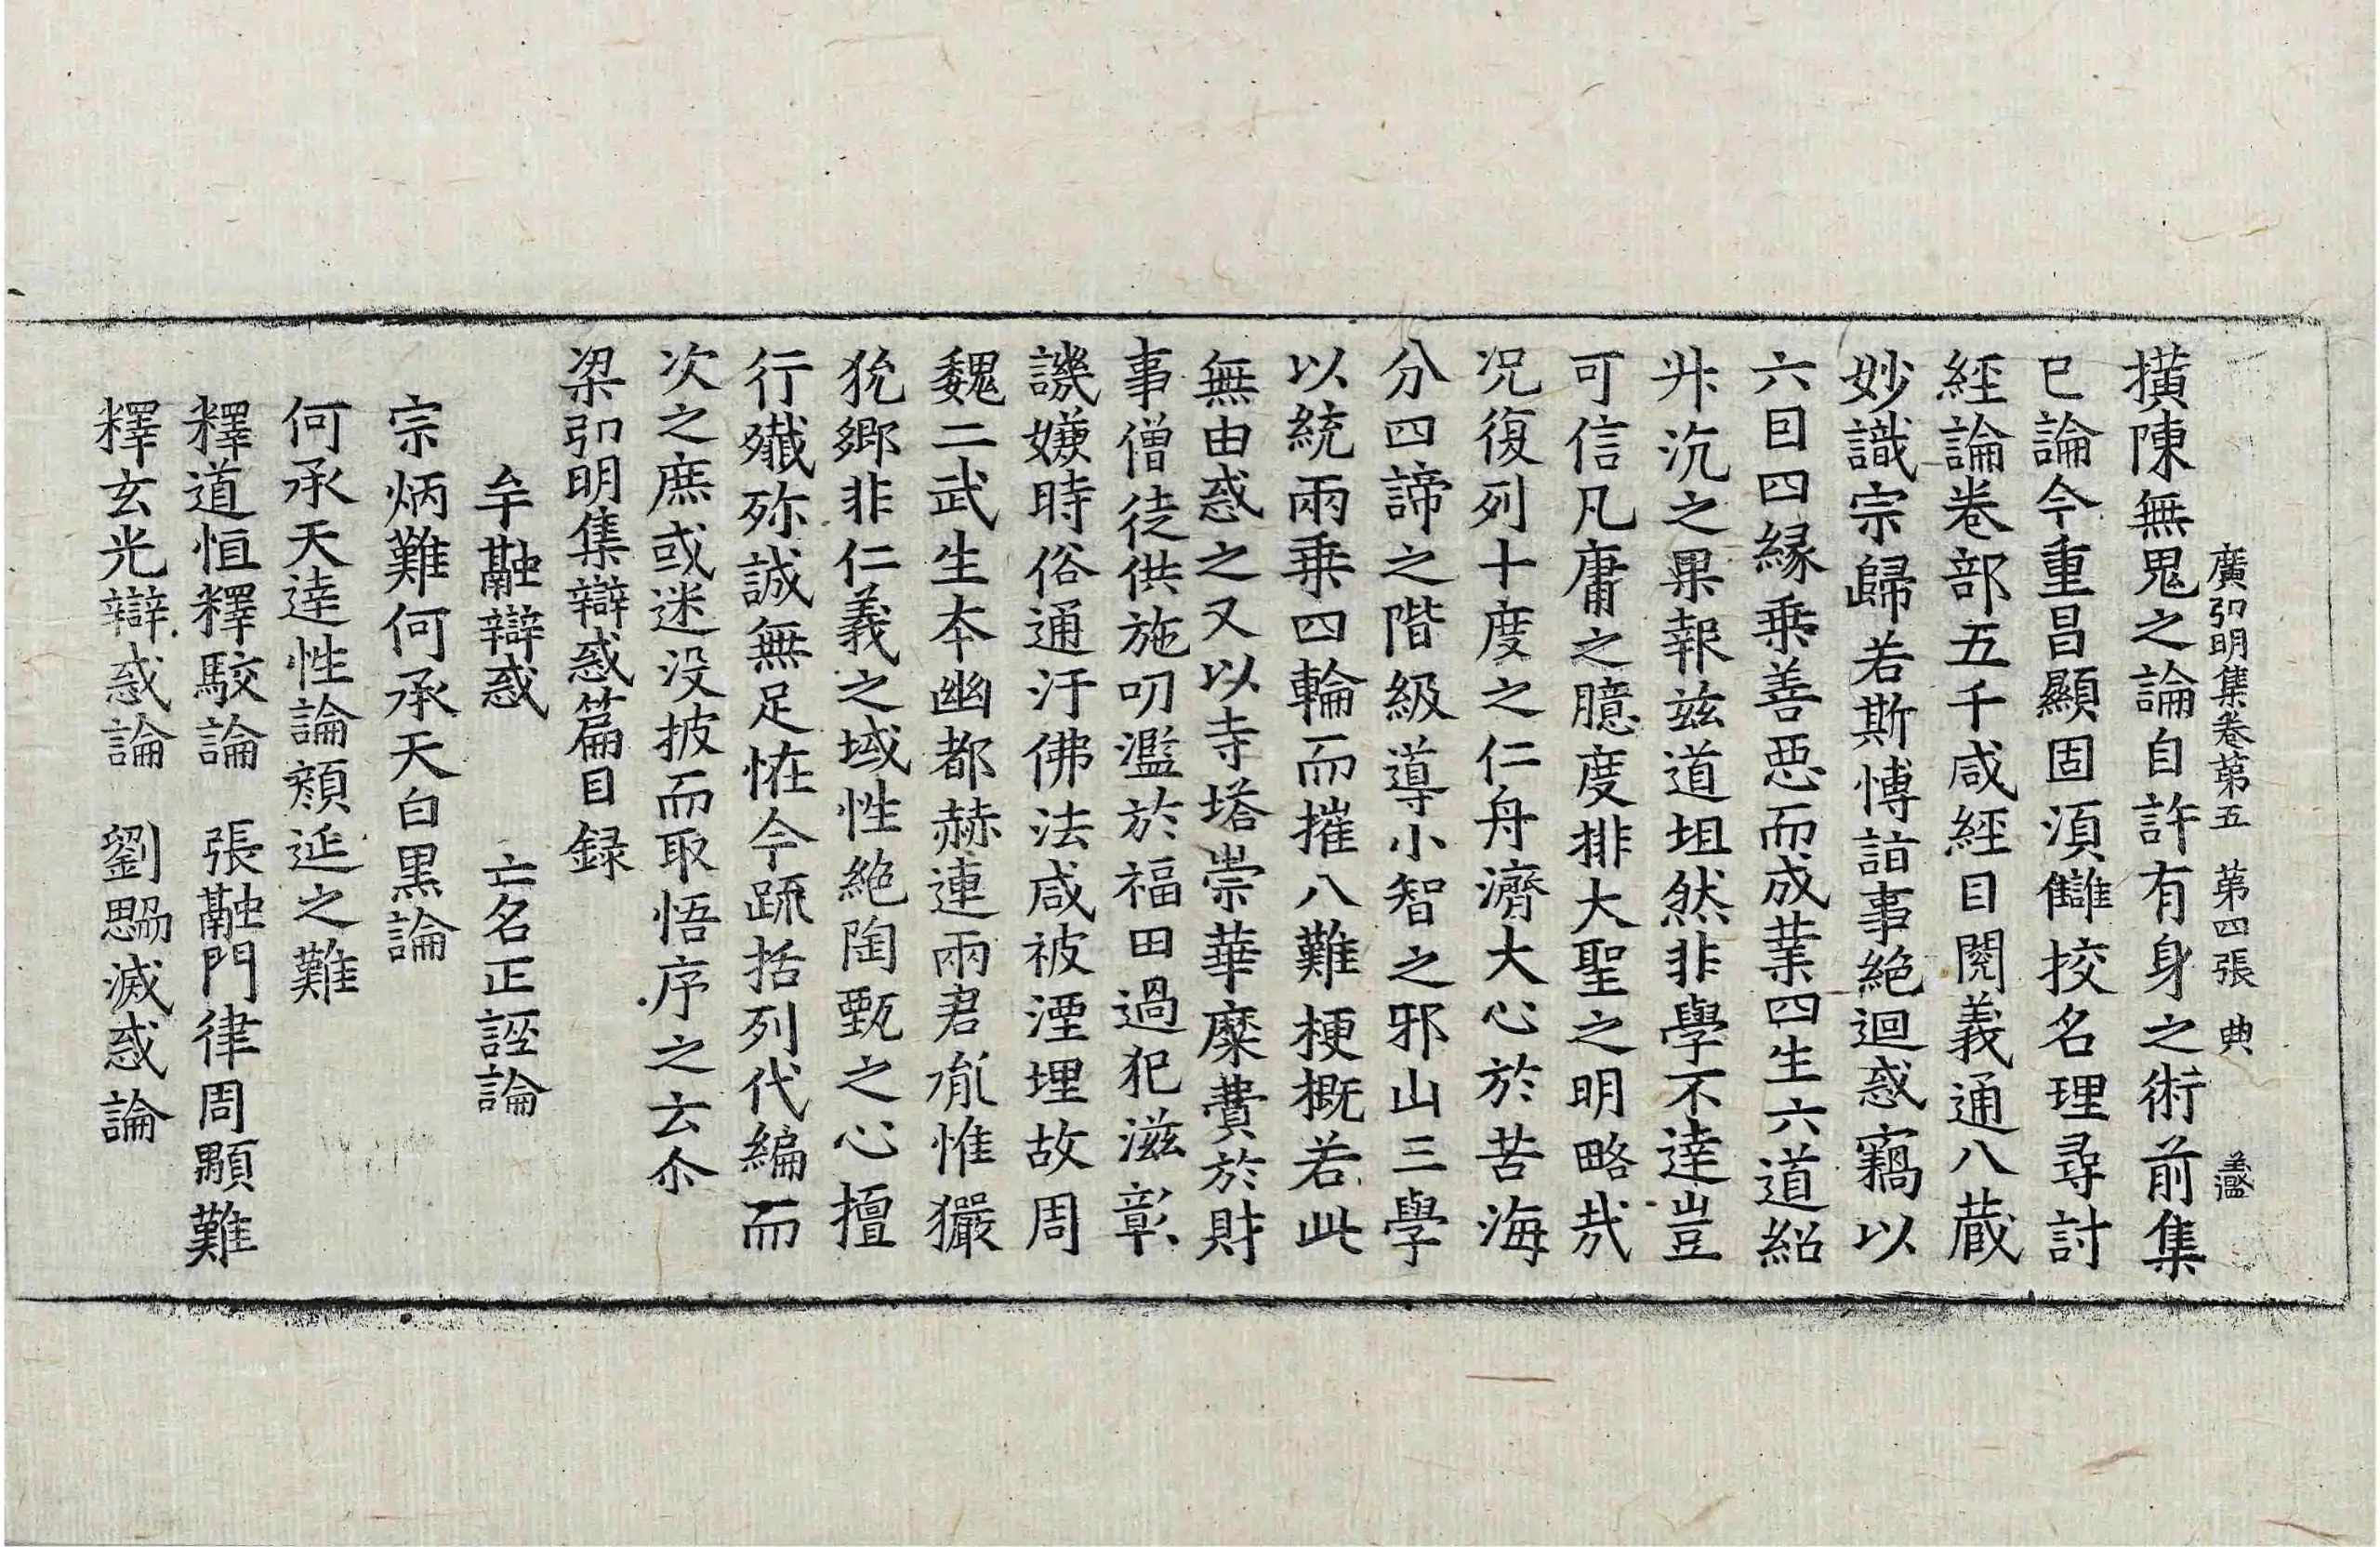 廣弘明集卷第五 第四張 典
橫陳無鬼之論自許有身之術前集
已論今重昌顯固湏讎挍名理尋討
經論卷部五千咸經目閱義通八蔵
妙識宗歸若斯愽詣事絶迴惑竊以
六因四縁乗善惡而成業四生六道紹
升沉之果報茲道坦然非學不達豈
可信凡庸之臆度排大聖之明略㢤
况復列十度之仁舟濟大心於苦海
分四諦之階級導小智之邪山三學
以統兩乗四輪而摧八難梗概若此
無由惑之又以寺塔崇華糜費於財
事僧徒供施叨濫於福田過犯滋彰
譏嫌時俗通汙佛法咸被湮埋故周
魏二武生本幽都赫連兩君胤惟玁
狁鄉非仁義之域性絶陶甄之心擅
行殲殄誠無足恠今疏括列代編而
次之庶或迷没披而取悟序之云尒
梁弘明集辯惑篇目録
牟融辯惑 亡名正誣論
宗炳難何承天白黒論
何承天達性論顔延之難
釋道恒釋駮論 張融門律周顒難
釋玄光辯惑論 劉勰滅惑論